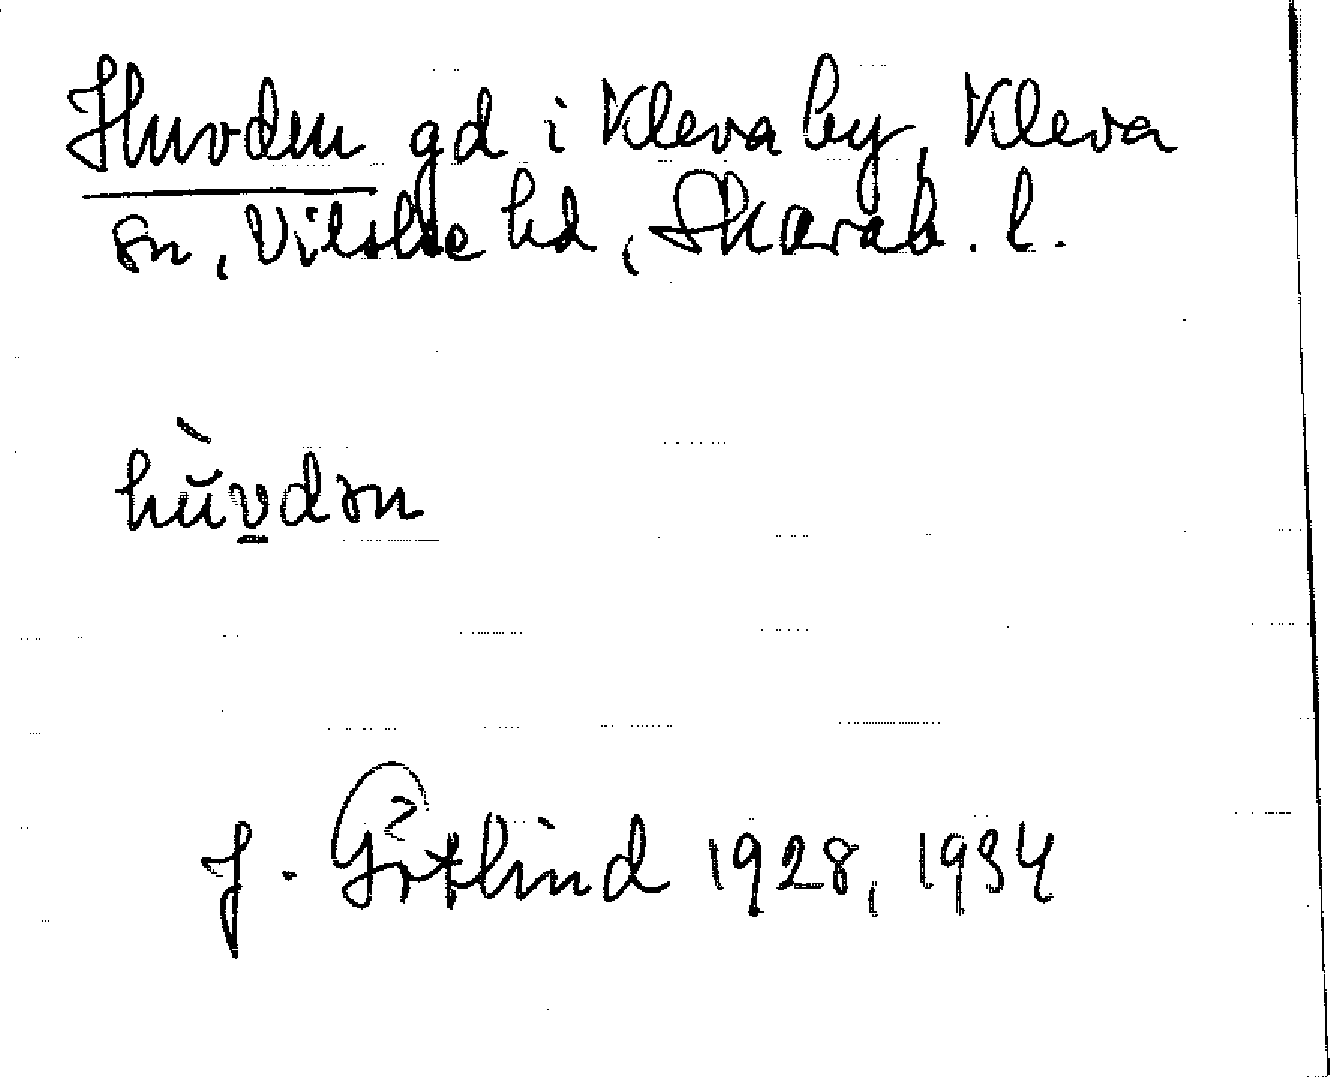 Huvden gd i Kleva by, Kleva
sn, Vilske hd, Skarab. l.
hŭ̀v̱dən
J. Götlind 1928, 1934